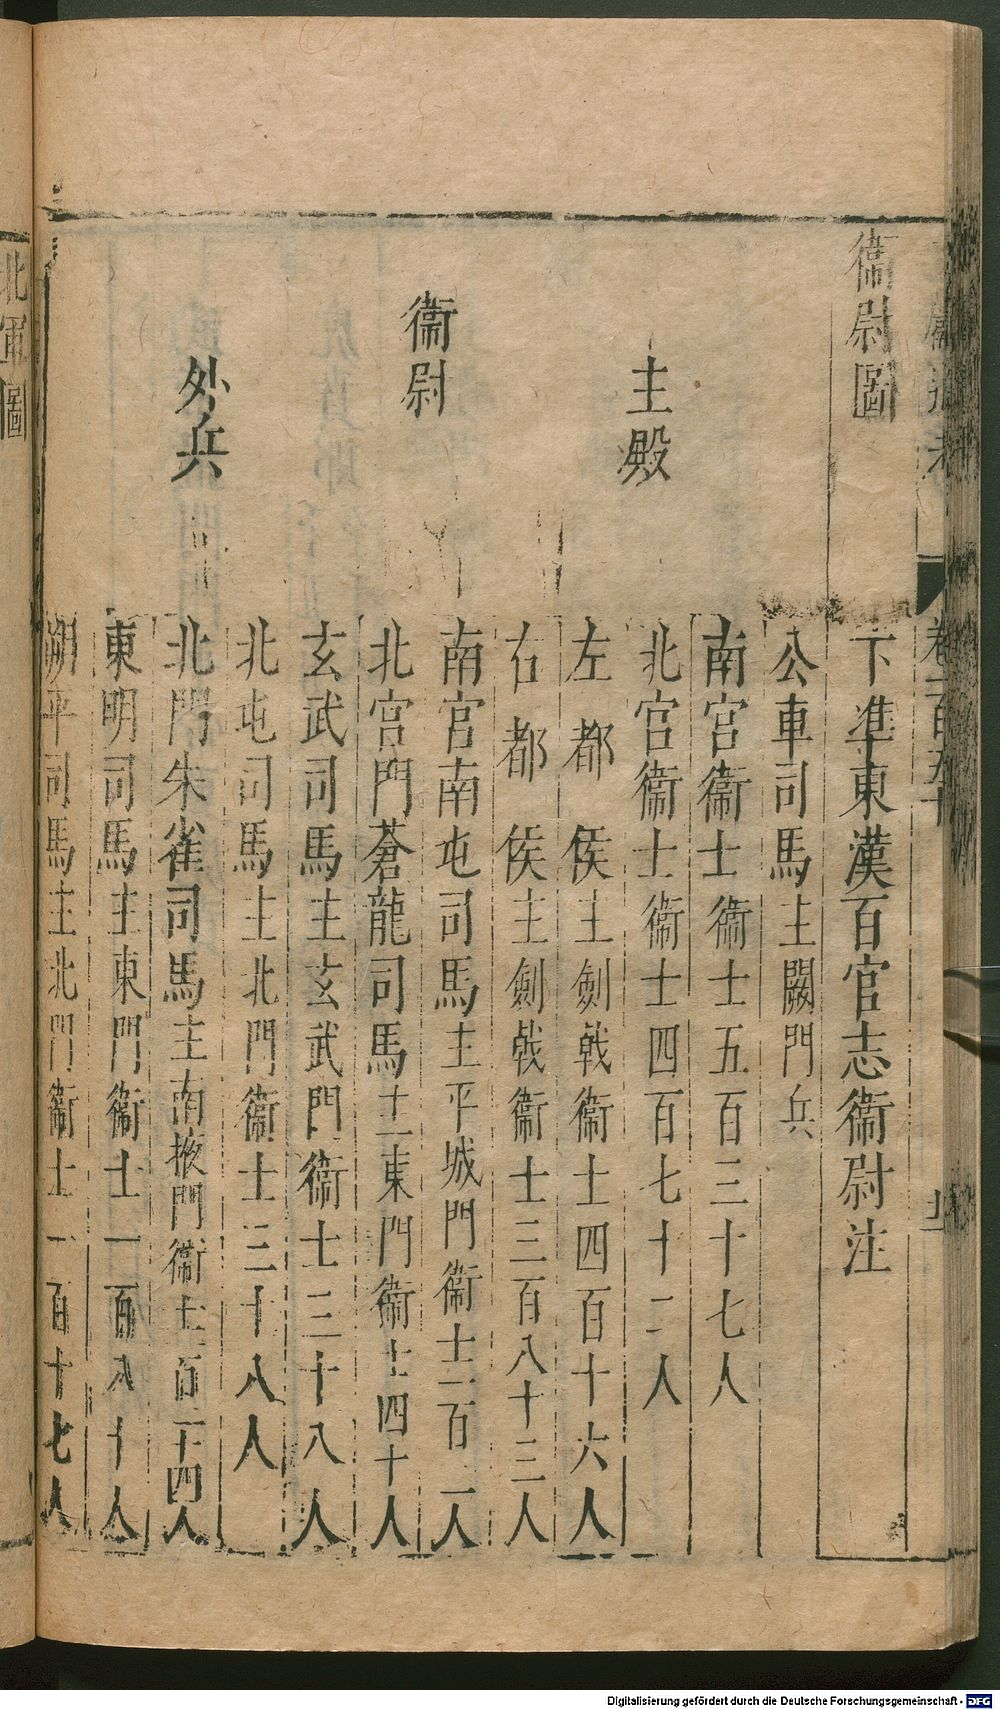 衞尉圖
下準東漢百官志衞尉注
主殿
衞尉
外兵
公車司馬主闕門兵
南宮衞士衞士五百三十七人
北宮衞士衞士四百七十二人
左都侯主劍戟衞士四百十六人
右都侯主劍戟衞士三百八十三人
南宮南屯司馬主平城門衞士百二人
北宮門蒼龍司馬主東門衞士四十人
玄武司馬主玄武門衞士三十八人
北屯司馬主北門衞士三十八人
北門朱雀司馬主南掖門衞士百二十四人
東明司馬主東門衞士一百八十人
朔平司馬主北門衞士一百十七人
北軍圖
卷一百五十
Digitalisierung gefördert durch die Deutsche Forschungsgemeinschaft - DFG